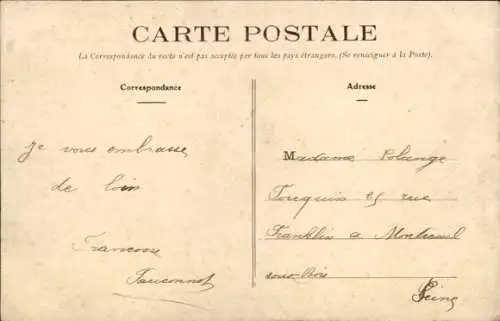 CARTE POSTALE
La Correspondance du recto n'est pas acceptée par tous les pays étrangers. (Se renseigner à la Poste).
Correspondance
Adresse
je vous embrasse
de loin
Francoise
Fauconnot
Madame Solange
rue
Franklin a Montreuil
sous-Bois
Seine